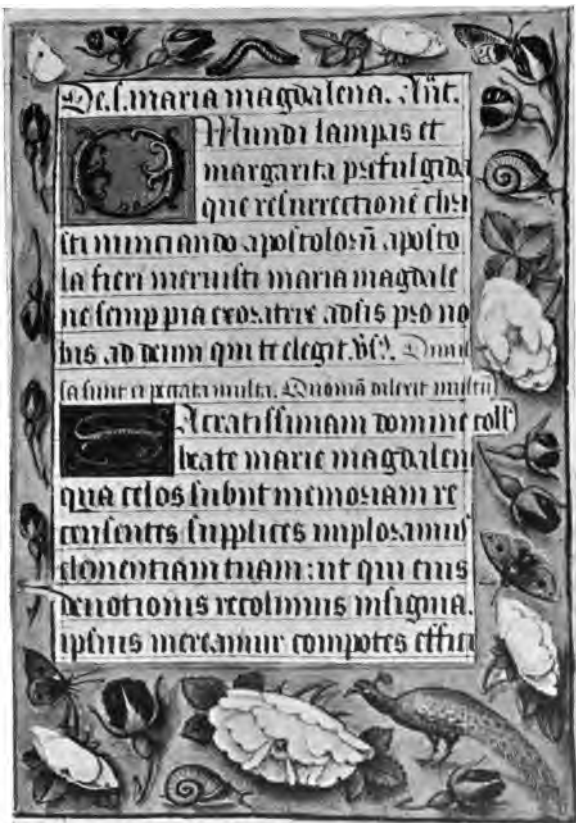 De .s. maria magdalena. Añt.
O Mundi lampas et
margarita prefulgida
que resurrectionē chri
sti nunciando apostoloꝝ aposto
la fieri meruisti maria magdale
ne semp pia exoratrix adsis pro no
bis ad deum qui te elegit. v̄s. Dimis
sa sunt ei peccata multa. Quoniā dilexit multū
Sacratissimam domine coll
beate marie magdalen
qua celos subiit memoriam re
censentes supplices imploramus
clementiam tuam: ut qui eius
deuotionis recolimus insignia.
ipsius mereamur compotes effici